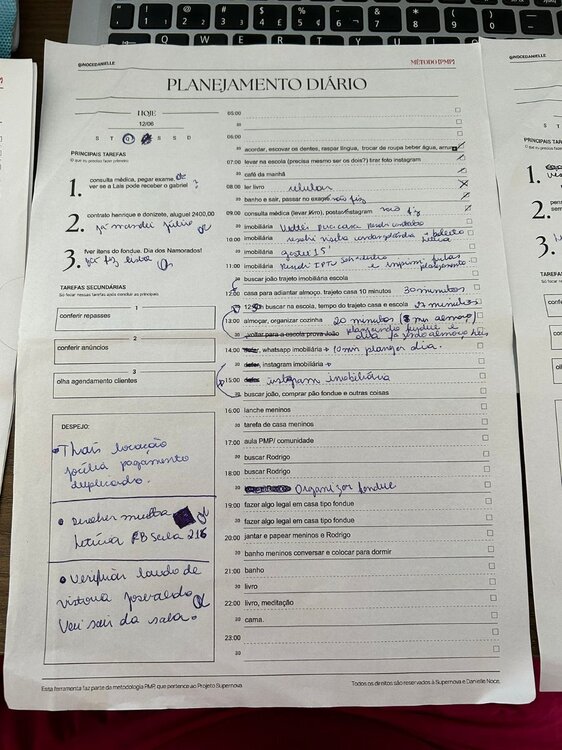 @NOCEDANIELLE
MÉTODO [PMP]
PLANEJAMENTO DIÁRIO
HOJE
12/06
S T Q S S D
PRINCIPAIS TAREFAS
O que eu preciso fazer primeiro
1. consulta médica, pegar exame. ok
ver se a Lais pode receber o gabriel
2. contrato henrique e donizete, aluguel 2400,00
já mandei Júlio ok
3. fver itens do fondue. Dia dos Namorados!
já fiz lista ok
TAREFAS SECUNDÁRIAS
Só focar nessas tarefas após concluir as principais.
1
conferir repasses
2
conferir anúncios
3
olha agendamento clientes
DESPEJO:
• Thais locação
pagamento
duplicado.
• Devolver multa
Letícia RB Sala 216
• Verificar laudo de
vistoria Josevaldo
da sala.
05:00
30
06:00
30 acordar, escovar os dentes, raspar língua, trocar de roupa beber água, arrumar
07:00 levar na escola (precisa mesmo ser os dois?) tirar foto instagram
30 café da manhã
08:00 ler livro celular
30 banho e sair, passar no exame não fiz
09:00 consulta médica (levar livro), postar instagram não fiz
30 imobiliária
10:00 imobiliária
30 imobiliária gastei 15'
11:00 imobiliária Resolvi IPTU
planejamento
30 buscar joão trajeto imobiliária escola
12:00 casa para adiantar almoço. trajeto casa 10 minutos 30 minutos
30 buscar na escola, tempo do trajeto casa e escola 27 minutos
13:00 almoçar, organizar cozinha 20 minutos (8 min almoço)
30 voltar para a escola prova João planejando fondue e
14:00 whatsapp imobiliária → 10 min planejar dia.
30 instagram imobiliária
15:00 instagram imobiliária
30 buscar joão, comprar pão fondue e outras coisas
16:00 lanche meninos
30 tarefa de casa meninos
17:00 aula PMP/ comunidade
30 buscar Rodrigo
18:00 buscar Rodrigo
30 Organizar fondue
19:00 fazer algo legal em casa tipo fondue
30 fazer algo legal em casa tipo fondue
20:00 jantar e papear meninos e Rodrigo
30 banho meninos conversar e colocar para dormir
21:00 banho
30 livro
22:00 livro, meditação
30 cama.
23:00
30
Essa ferramenta faz parte da metodologia PMP, que pertence ao Projeto Supernova.
Todos os direitos são reservados à Supernova e Danielle Noce.